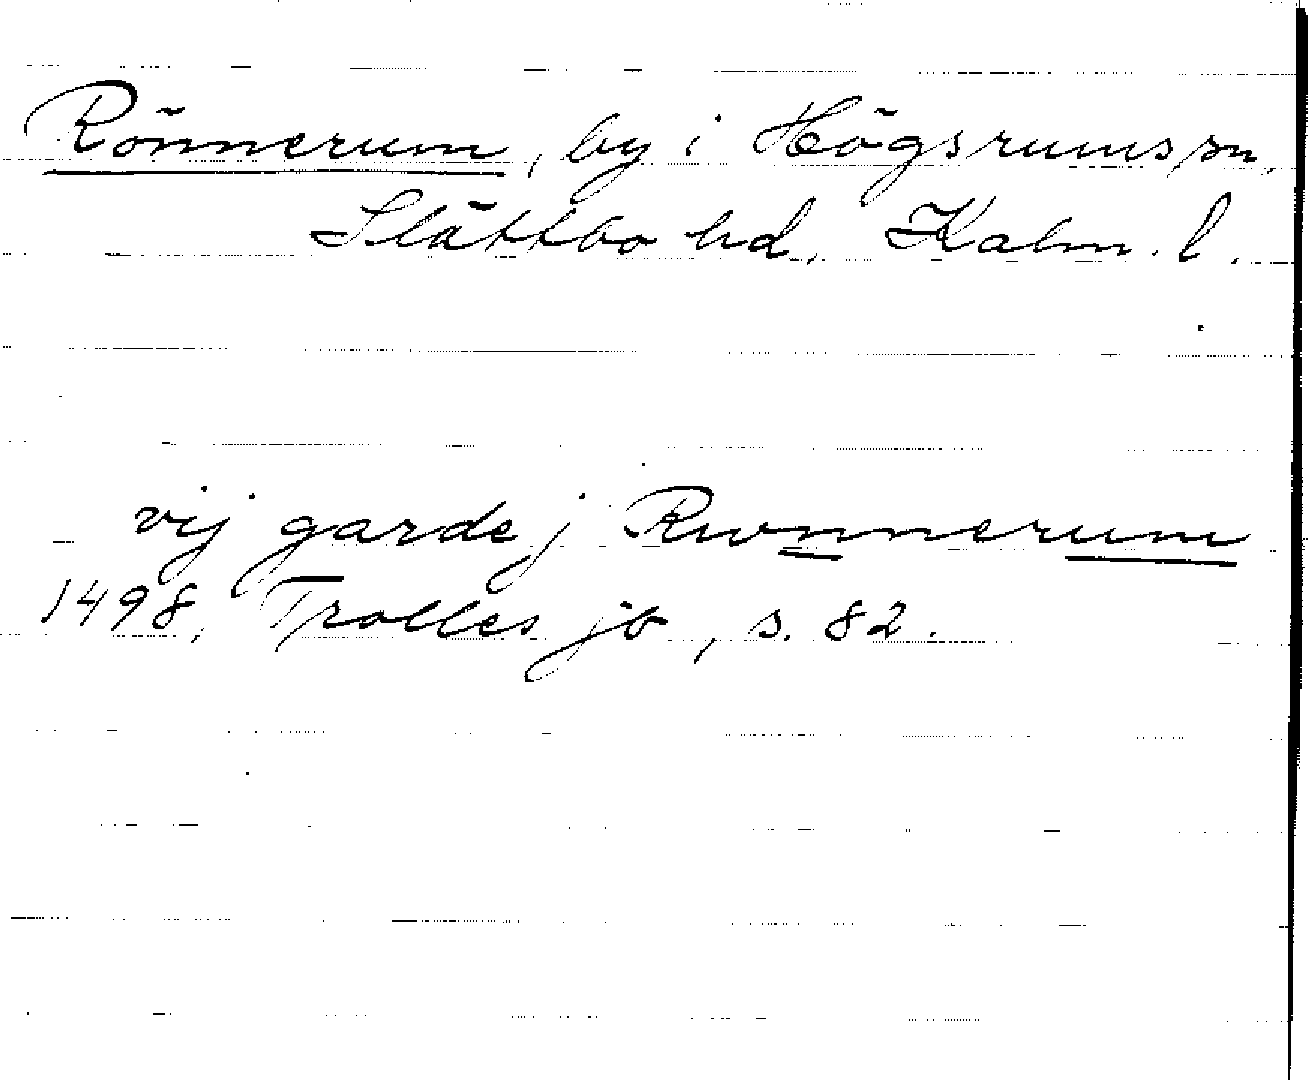 Rönnerum, by i Högsrums sn,
Slättbo hd, Kalm. l.
vij garde j Rwnnerum
1498, Trolles jb, s. 82.